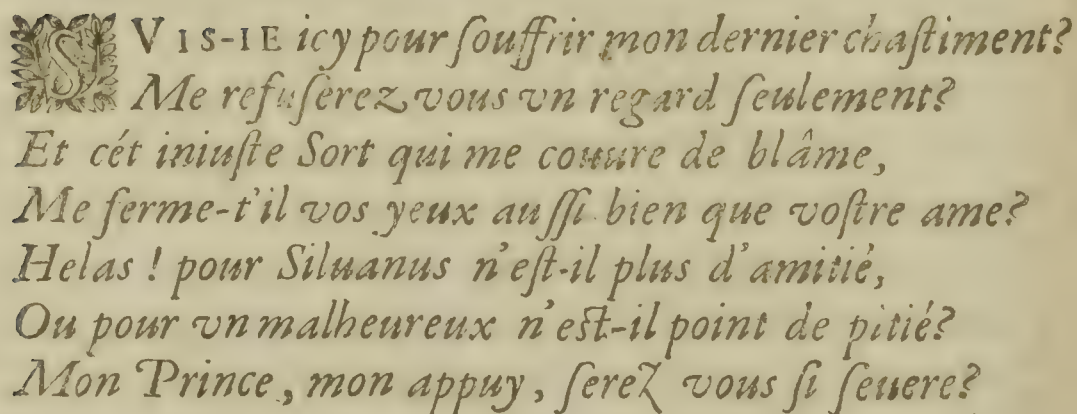 SVIS-IE icy pour ſouffrir mon dernier chaſtiment?
Me refuſerez vous vn regard ſeulement?
Et cét iniuſte Sort qui me couure de blâme,
Me ferme-t'il vos yeux auſſi bien que voſtre ame?
Helas ! pour Siluanus n'eſt-il plus d'amitié,
Ou pour vn malheureux n'eſt-il point de pitié?
Mon Prince, mon appuy, ſerez vous ſi ſeuere?